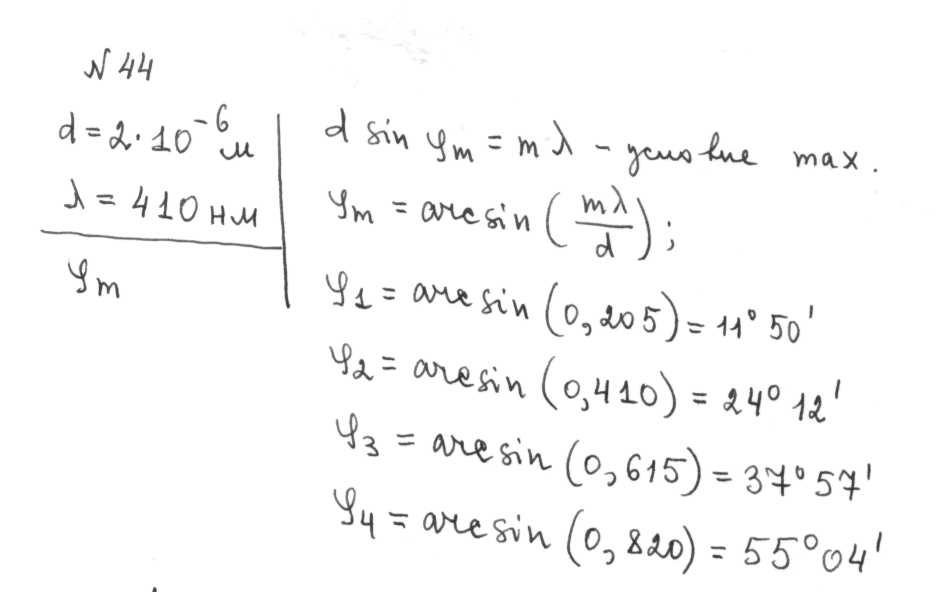 N 44
d = 2·10⁻⁶ м
λ = 410 нм
φm
d sin φm = mλ – условие max.
φm = arcsin (mλ/d);
φ1 = arcsin (0,205) = 11° 50'
φ2 = arcsin (0,410) = 24° 12'
φ3 = arcsin (0,615) = 37° 57'
φ4 = arcsin (0,820) = 55° 04'